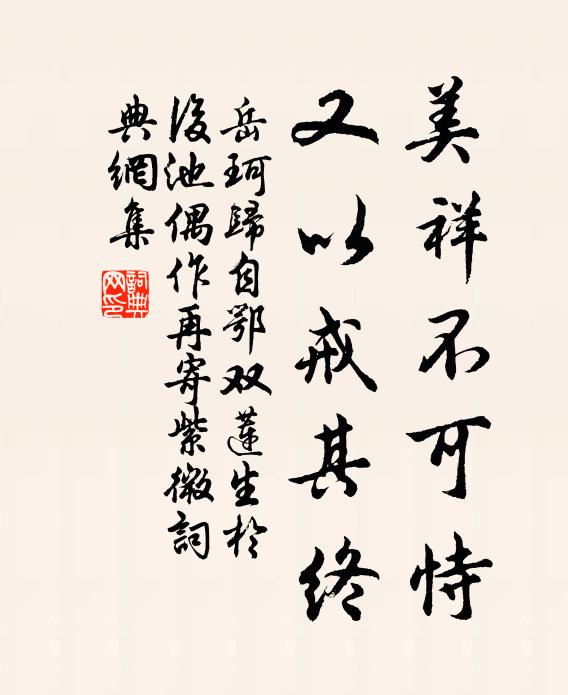 美祥不可恃
又以戒其终
岳珂歸自鄂双蓮生於
後池偶作再寄紫微詞
典網集
詞典網印